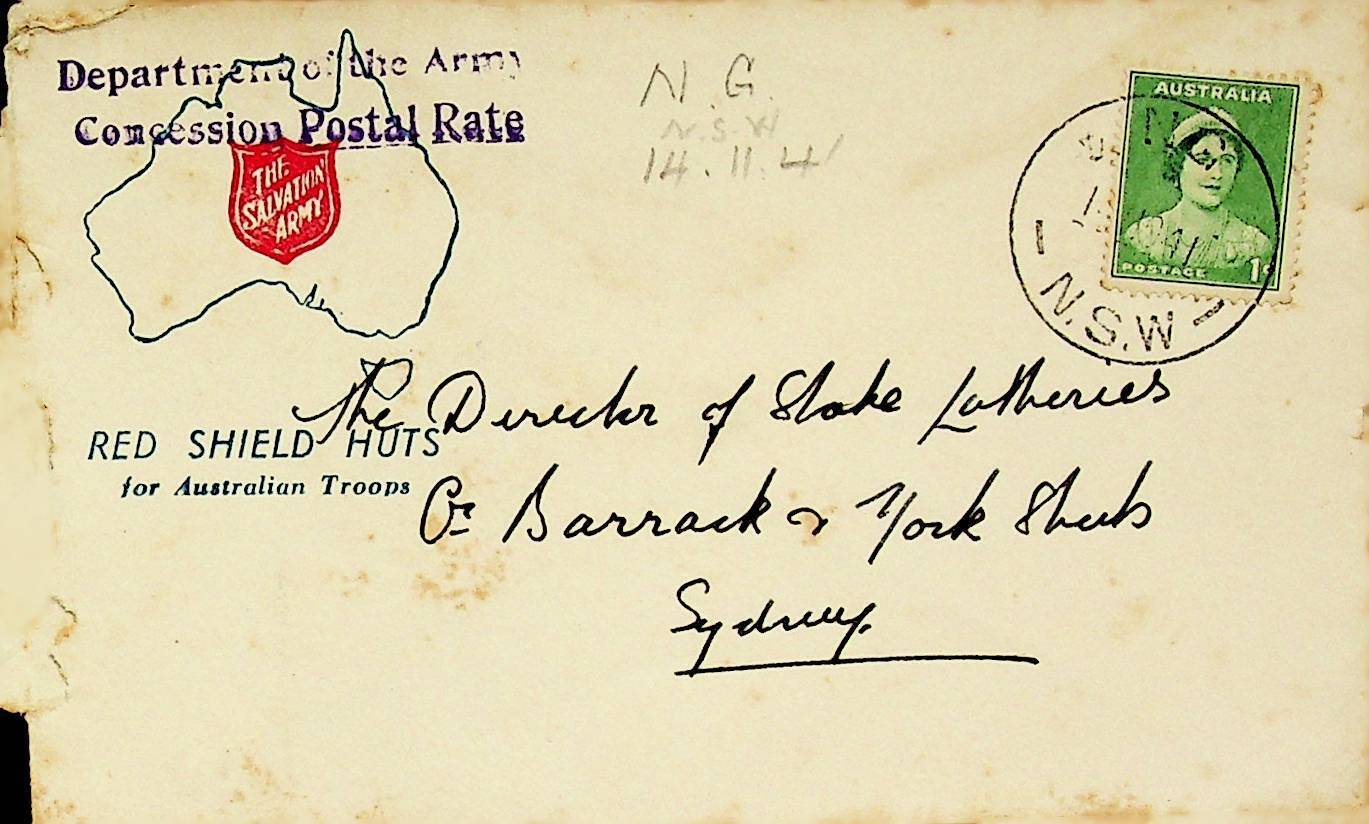 Department of the Army
Concession Postal Rate
THE
SALVATION
ARMY
N.G.
N.S.W
14.11.41
AUSTRALIA
POSTAGE 1d
N.S.W
RED SHIELD HUTS
for Australian Troops
The Director of State Lotteries
Cr Barrack & York Streets
Sydney.